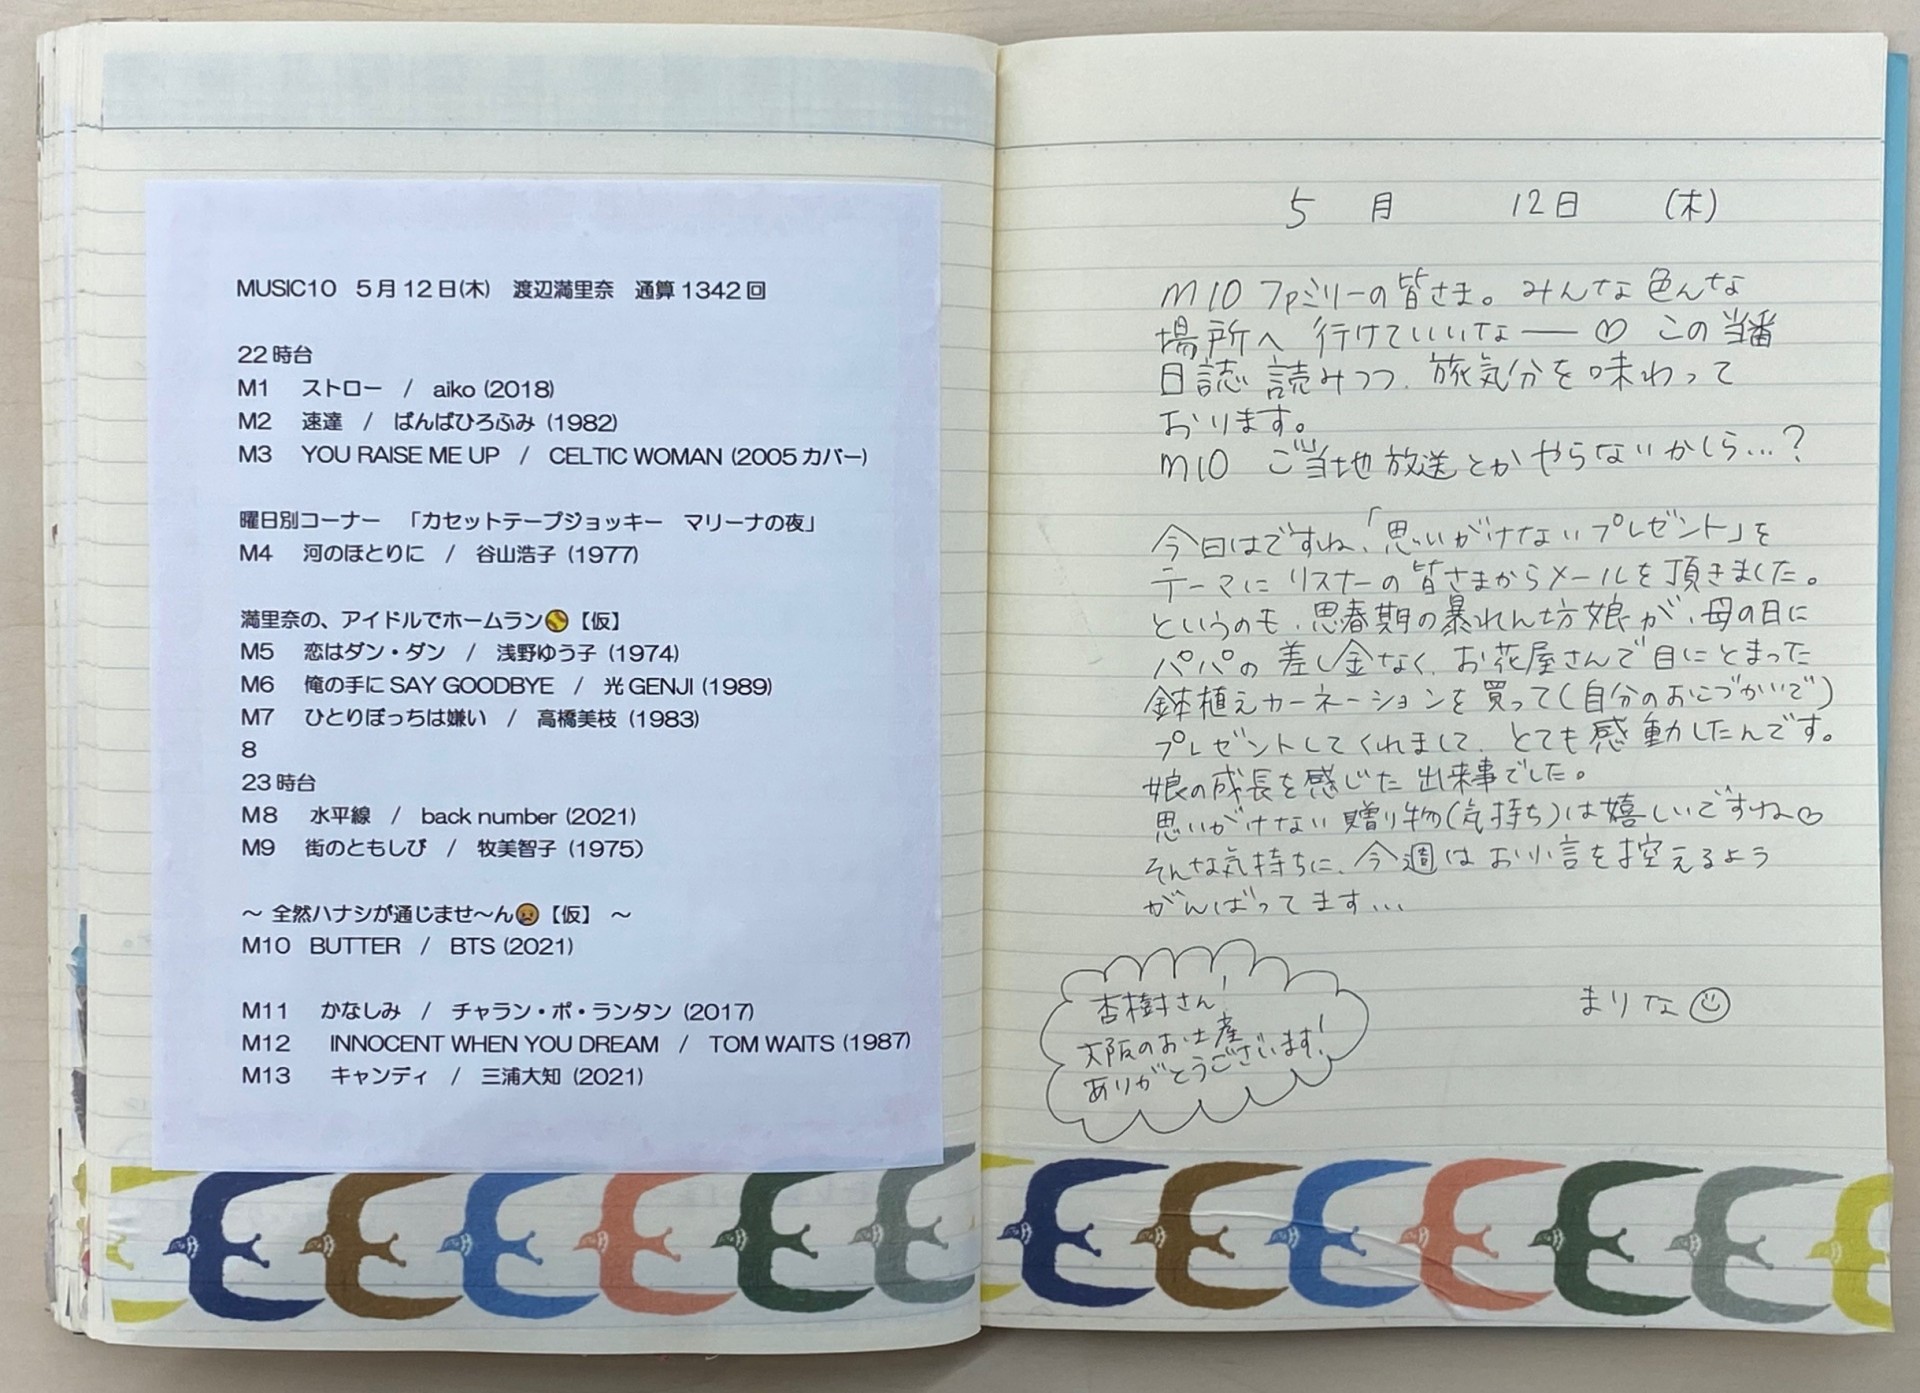 MUSIC10 5月12日(木) 渡辺満里奈 通算1342回
22時台
M1 ストロー / aiko (2018)
M2 速達 / ばんばひろふみ (1982)
M3 YOU RAISE ME UP / CELTIC WOMAN (2005カバー)
曜日別コーナー 「カセットテープジョッキー マリーナの夜」
M4 河のほとりに / 谷山浩子 (1977)
満里奈の、アイドルでホームラン🥎【仮】
M5 恋はダン・ダン / 浅野ゆう子 (1974)
M6 俺の手にSAY GOODBYE / 光GENJI (1989)
M7 ひとりぼっちは嫌い / 高橋美枝 (1983)
8
23時台
M8 水平線 / back number (2021)
M9 街のともしび / 牧美智子 (1975)
～ 全然ハナシが通じませ～ん😡【仮】 ～
M10 BUTTER / BTS (2021)
M11 かなしみ / チャラン・ポ・ランタン (2017)
M12 INNOCENT WHEN YOU DREAM / TOM WAITS (1987)
M13 キャンディ / 三浦大知 (2021)
5月 12日 (木)
M10 ファミリーの皆さま。みんな色んな
場所へ 行けていいなー♡ この当番
日誌 読みつつ、旅気分を味わって
おります。
M10 ご当地放送とかやらないかしら…?
今日はですね、「思いがけないプレゼント」を
テーマに リスナーの皆さまからメールを頂きました。
というのも、思春期の暴れん坊娘が、母の日に
パパの差し金なく、お花屋さんで目にとまった
鉢植えカーネーションを買って(自分のおこづかいで)
プレゼントしてくれまして、とても感動したんです。
娘の成長を感じた出来事でした。
思いがけない贈り物(気持ち)は嬉しいですね♡
そんな気持ちに、今週はお小言を控えるよう
がんばってます…
まりな☺
杏樹さん、
大阪のお土産
ありがとうございます!